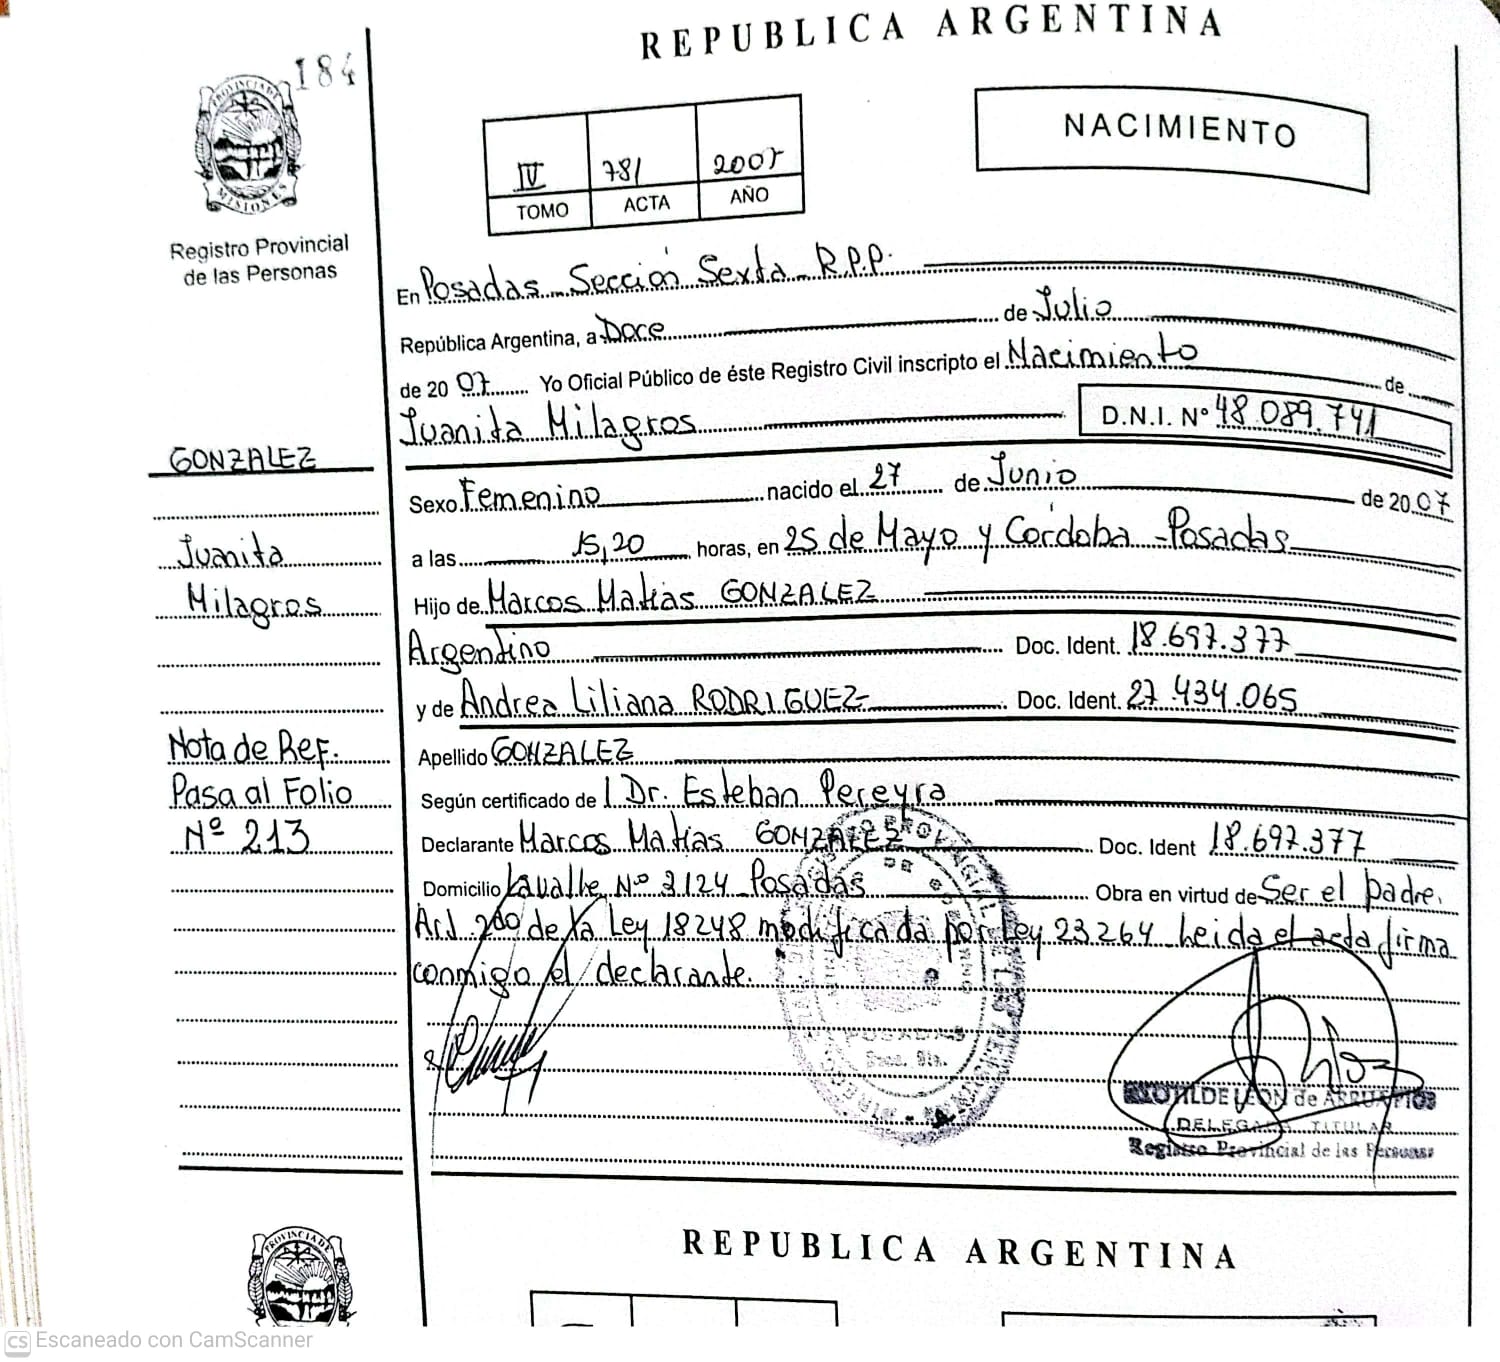 REPUBLICA ARGENTINA
184
PROVINCIA DE
MISIONES
Registro Provincial
de las Personas
NACIMIENTO
IV 781 2007
TOMO ACTA AÑO
En Posadas Sección Sexta R.P.P.
República Argentina, a Doce de Julio
de 2007 Yo Oficial Público de éste Registro Civil inscripto el Nacimiento de
Juanita Milagros D.N.I. Nº 48.089.741
GONZALEZ
Sexo Femenino nacido el 27 de Junio de 2007
Juanita
a las 15,20 horas, en 25 de Mayo y Córdoba - Posadas
Milagros
Hijo de Marcos Matias GONZALEZ
Argentino Doc. Ident. 18.697.377
y de Andrea Liliana RODRIGUEZ Doc. Ident. 27.434.065
Nota de Ref.
Apellido GONZALEZ
Pasa al Folio
Según certificado de l Dr. Esteban Pereyra
Nº 213
Declarante Marcos Matias GONZALEZ Doc. Ident 18.697.377
Domicilio Lavalle Nº 3124 Posadas Obra en virtud de Ser el padre.
Art. 2do de la Ley 18248 modificada por Ley 23264 Leida el acta firma
conmigo el declarante.
POSADAS
DE LEON de
DELEGADA TITULAR
Registro Provincial de las Personas
PROVINCIA DE
REPUBLICA ARGENTINA
CS Escaneado con CamScanner